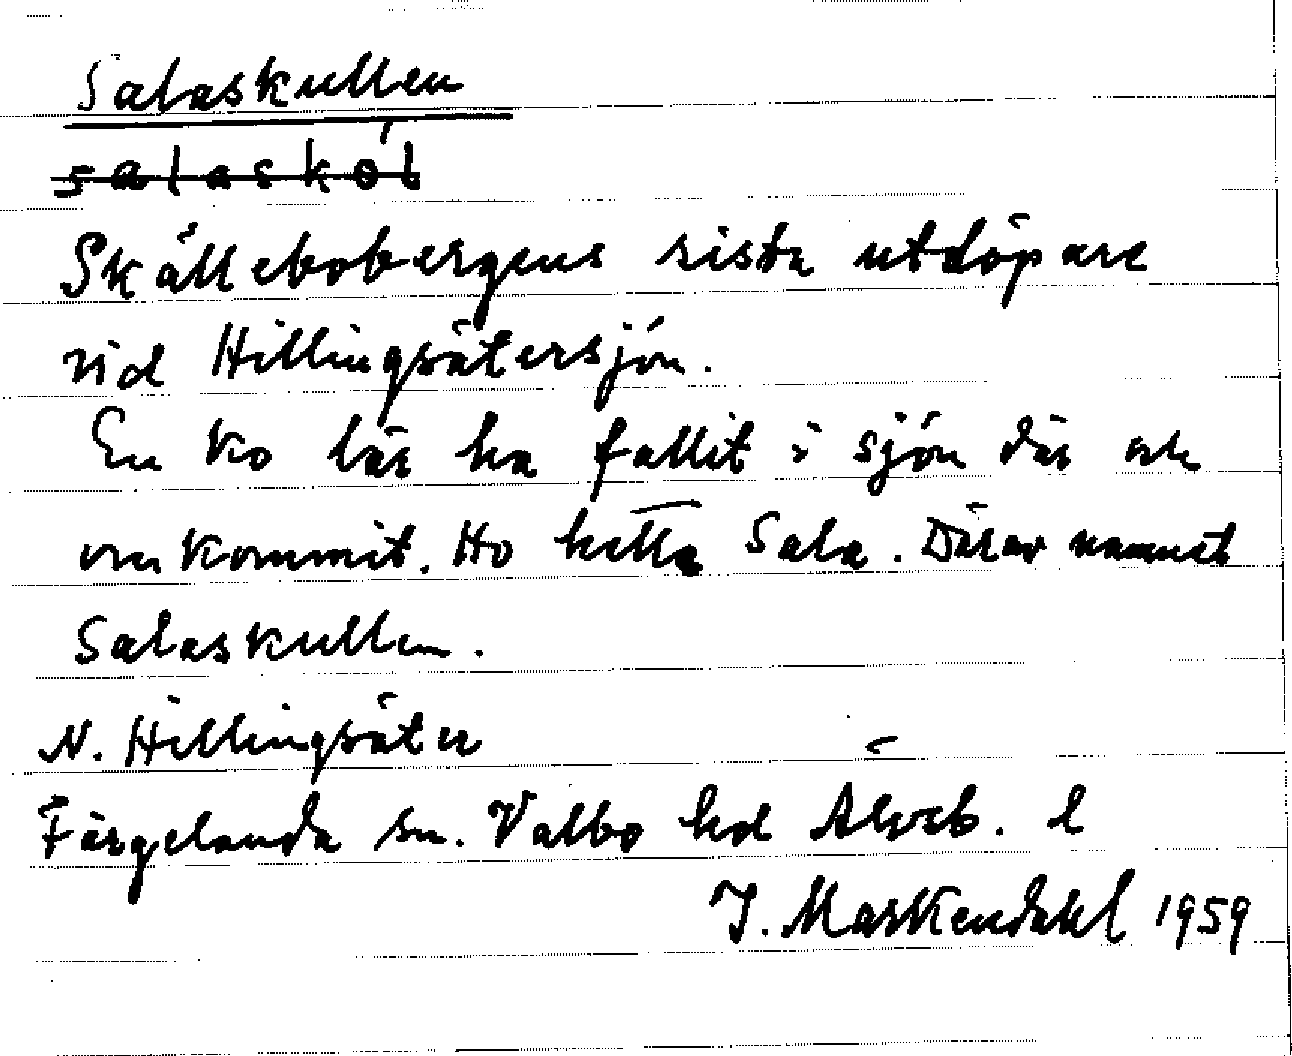 Salaskullen
salaskól
Skällebobergens sista utlöpare
vid Hillingsätersjön.
En ko lär ha fallit i sjön där och
omkommit. Ho hetta Sala. Därav namnet
Salaskullen.
N. Hillingsäter
Färgelanda sn. Valbo hd Älvsb. l
J. Markendahl 1959